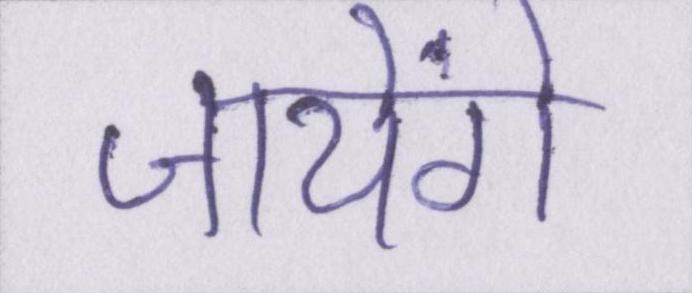 जायेंगे